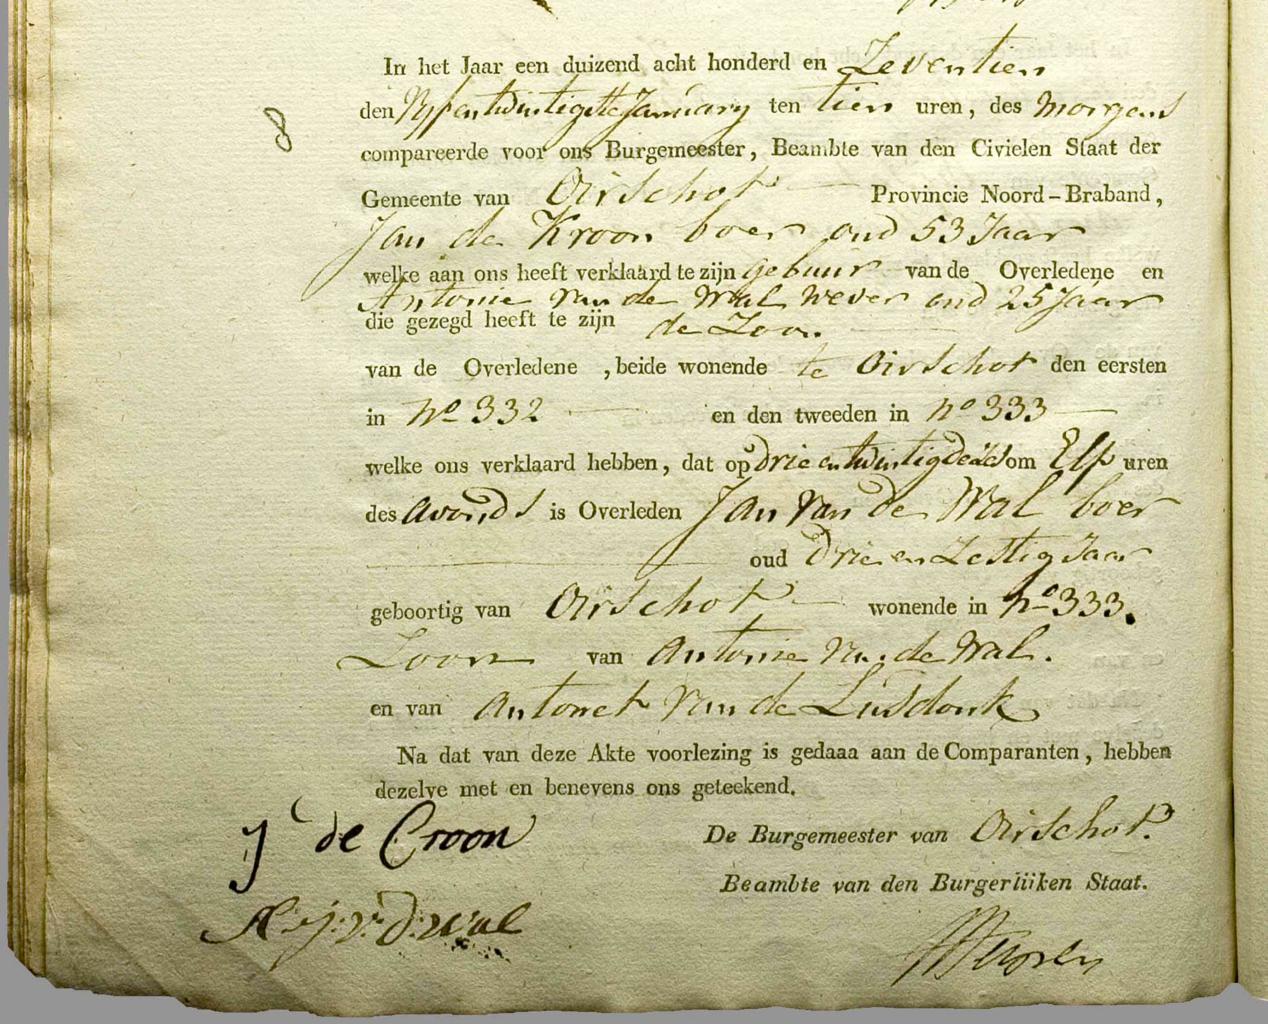 In het Jaar een duizend acht honderd en Zeventien
8
den Vyf en twintigste January ten tien uren, des morgens
compareerde voor ons Burgemeester, Beambte van den Civielen Staat der
Gemeente van Oirschot Provincie Noord-Braband,
Jan de Kroon boer oud 53 Jaar
welke aan ons heeft verklaard te zijn gebuur van de Overledene en
Antonie van de Wal Wever oud 25 Jaar
die gezegd heeft te zijn de Zoon
van de Overledene , beide wonende te Oirschot den eersten
in No 332 en den tweeden in no 333
welke ons verklaard hebben, dat op drie en twintig om Elf uren
des avonds is Overleden Jan van de Wal boer
oud drie en Zestig Jaar
geboortig van Oirschot wonende in no 333.
Zoon van Antonie van de Wal.
en van Antonet van de Lusdonk
Na dat van deze Akte voorlezing is gedaaa aan de Comparanten, hebben
dezelve met en benevens ons geteekend.
J de Croon
De Burgemeester van Oirschot.
Beambte van den Burgerlijken Staat.